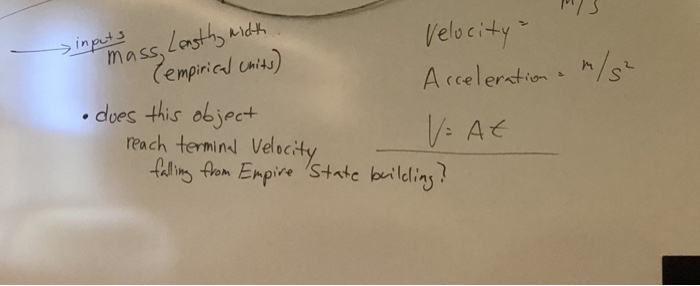 → inputs
mass, Length, width
(empirical units)
• does this object
reach terminal Velocity
falling from Empire State building?
m/s
Velocity =
Acceleration = m/s²
V = At